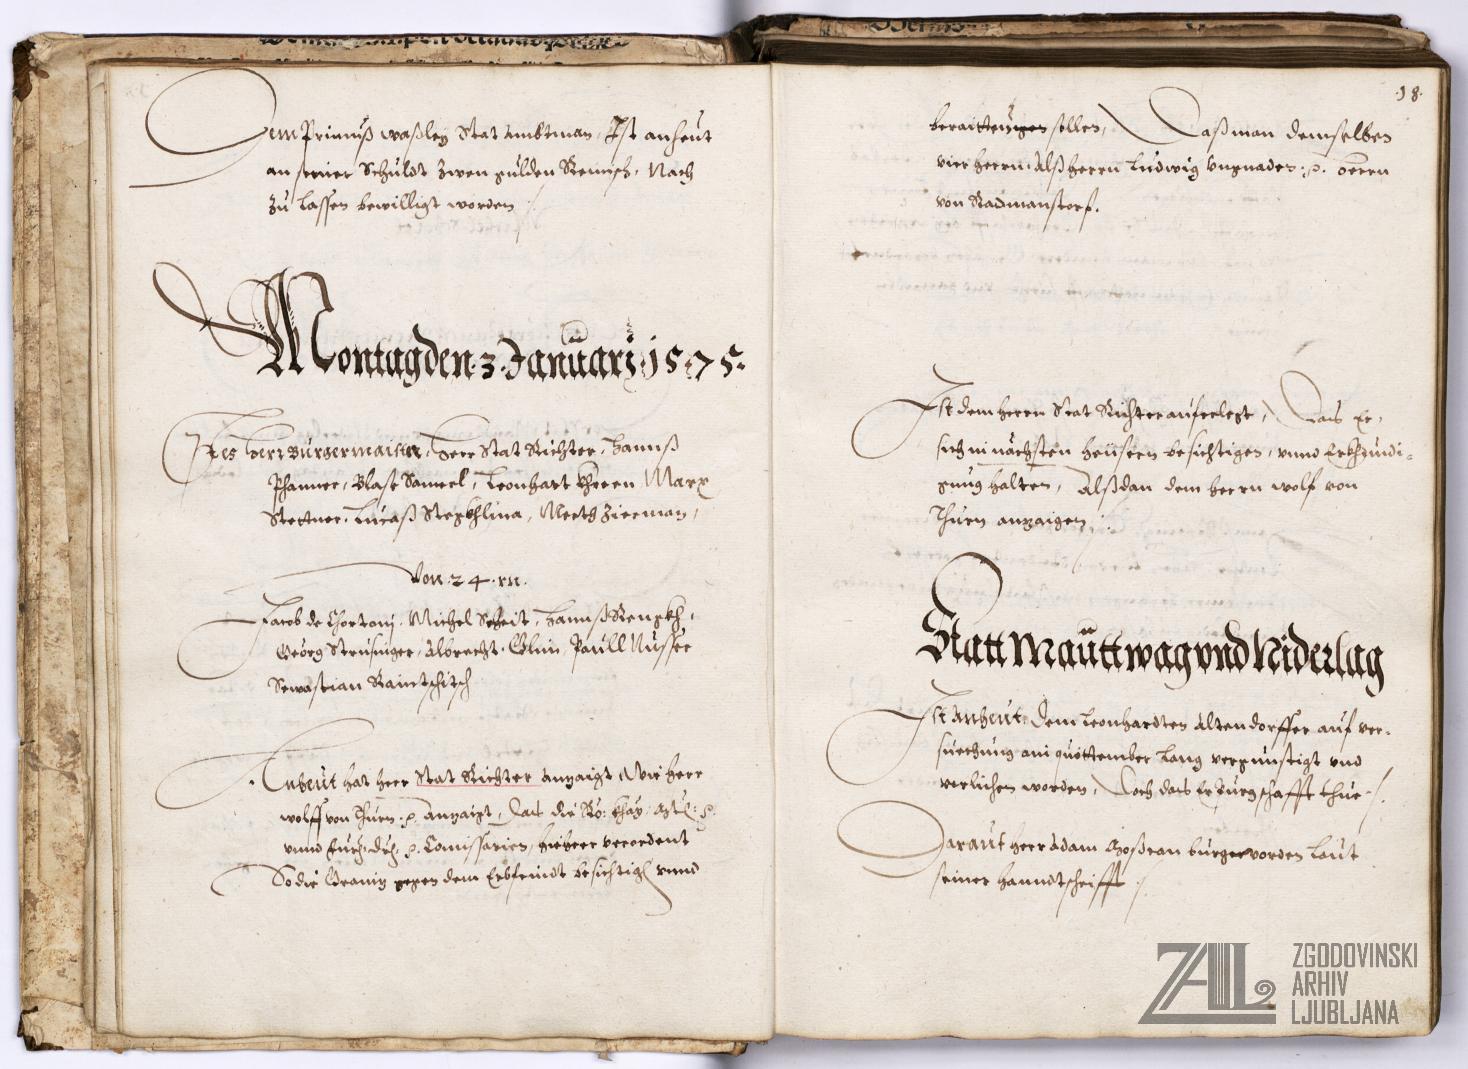 Dem Primuß waßleg Stat Ambtman, Ist anheut
an seiner Schuldt Zwen gulden Reinisch, Nach
zu lassen bewilligt worden
Montag den 3 Januarj 1575.
Herr Burgermaister, Herr Stat Richter, Hannß
Phanner, Blaß Samerl, Leonhart Khrern Marx
Stettner, Lucaß Stepkhlina, Merth Zierman,
Von 24.rn.
Jacob de Chortonj, Michel Scheit, Hannß Renzkh,
Georg Strusinger, Albrecht Chun, Paull Musser
Sewastian Raintschitsch
Anheut hat herr Stat Richter anzaigt, Wie herr
wolff von Thurn .p. Anzaigt, Das die Rö: khay: Mt: p.
vnnd Furh: Dh: p. Comissarien, hieheer verordent
So die Granitz gegen dem Erbfeindt besichtigen vnnd
18.
beraitten sollen, Daß man demselben
vier herrn Alß herrn Ludwig Vngnaden .p. herrn
von Radmanstorf.
Ist dem herrn Stat Richter auferlegt, Das Er
sich in nächsten heüsern besichtigen, vnnd Erkhundi-
gung halten, Alßdan dem herrn wolf von
Thurn anzaigen
Statt Mautt wag vnd Niderlag
Ist Anheut Dem Leonhardten Altendorffer auf ver-
suechung ain quottember lang vergunstigt vnd
verlichen worden, Doch das Er burgschafft thue
Darauf herr Adam burg worden laut
seiner handtschrifft
ZAL
ZGODOVINSKI
ARHIV
LJUBLJANA